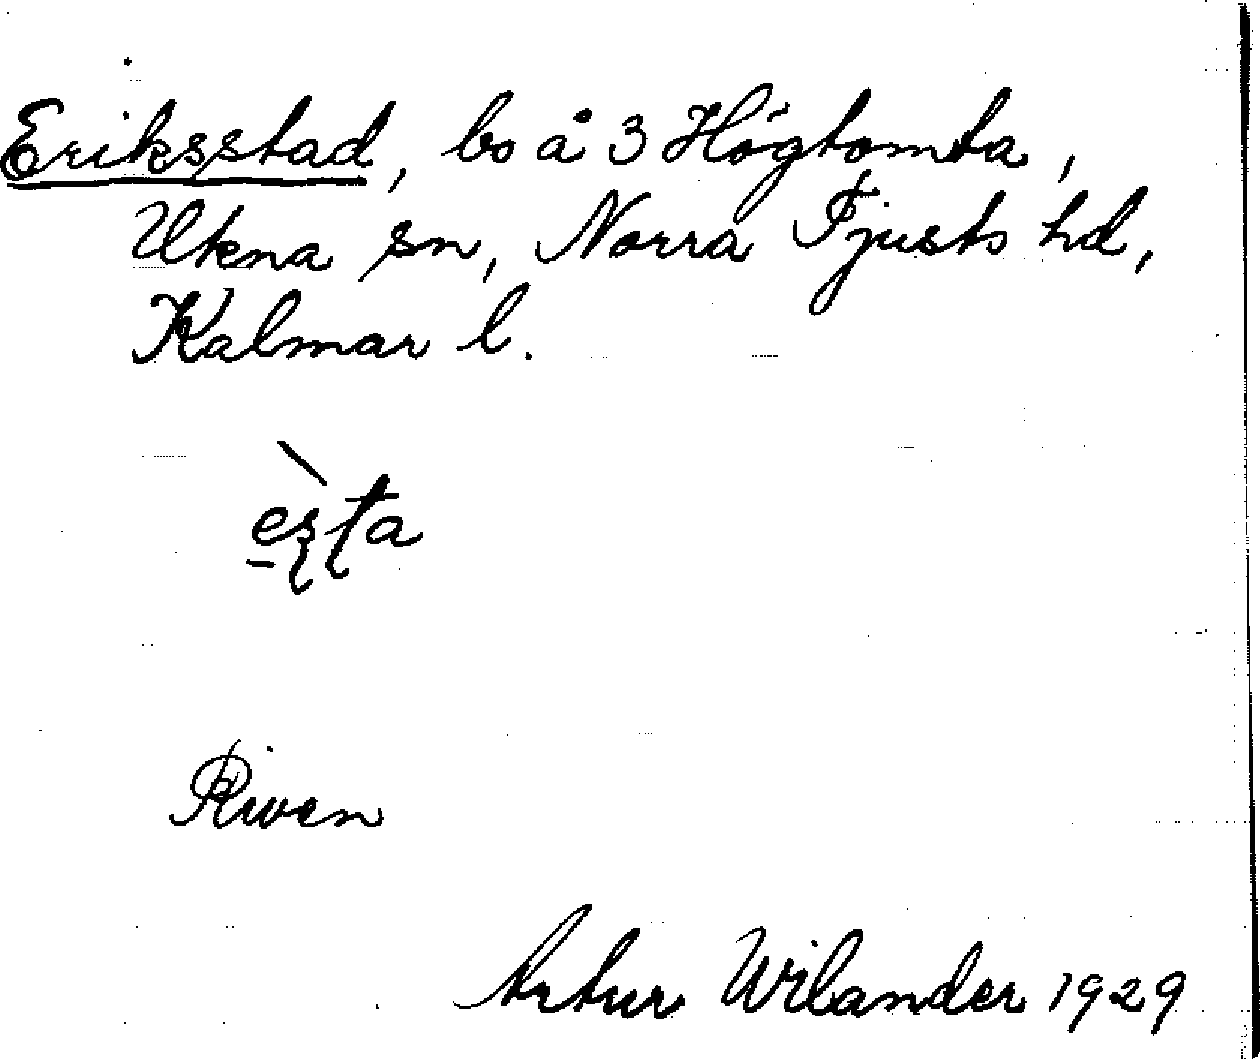 Eriksstad, bo å 3 Högtomta,
Ukna sn, Norra Tjusts hd,
Kalmar l.
Riven
Artur Wilander 1929